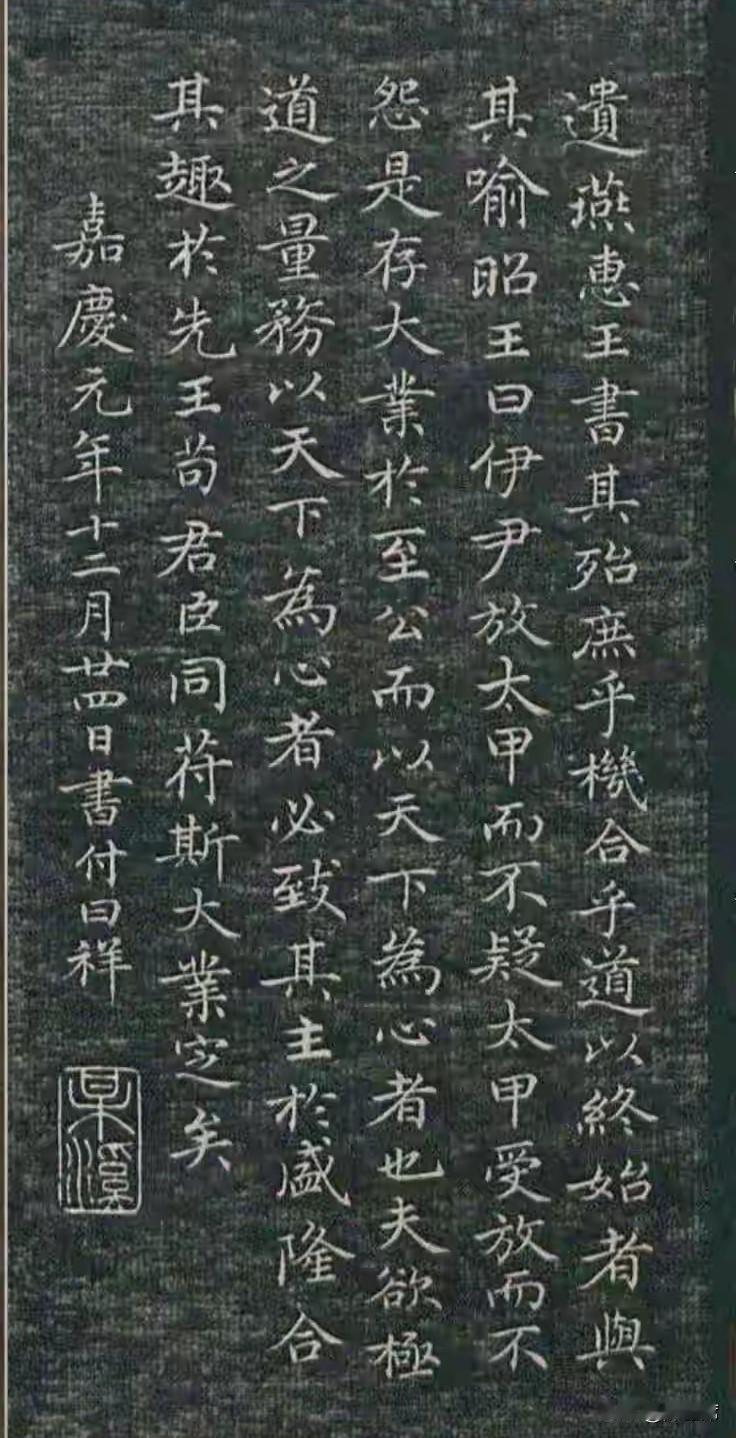 遺燕惠王書其殆庶乎機合乎道以終始者與
其喻昭王曰伊尹放太甲而不疑太甲受放而不
怨是存大業於至公而以天下為心者也夫欲極
道之量務以天下為心者必致其主於盛隆合
其趣於先王苟君臣同苻斯大業定矣
嘉慶元年十二月廿四日書付曰祥